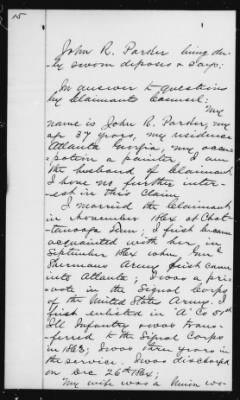 15
John R. Parder being du-
ly sworn deposes & says:
In answer to questions
by Claimants Counsel:
My
name is John R. Parder, my
age 37 years, my residence
Atlanta Georgia, my occu-
pation a painter, I am
the husband of Claimant
I have no further inter-
est in this claim.
I married the Claimant
in November 1864 at Chat-
tanooga Tenn; I first became
acquainted with her in
September 1864 when Genl
Shermans Army first came
into Atlanta; I was a pri-
vate in the Signal Corps
of the United States Army. I
first enlisted in "A" Co 51st
Ill Infantry & was trans-
ferred to the Signal Corps
in 1863; I was three years in
the service. I was discharged
on Dec 26th 1864;
My wife was a Union wo-